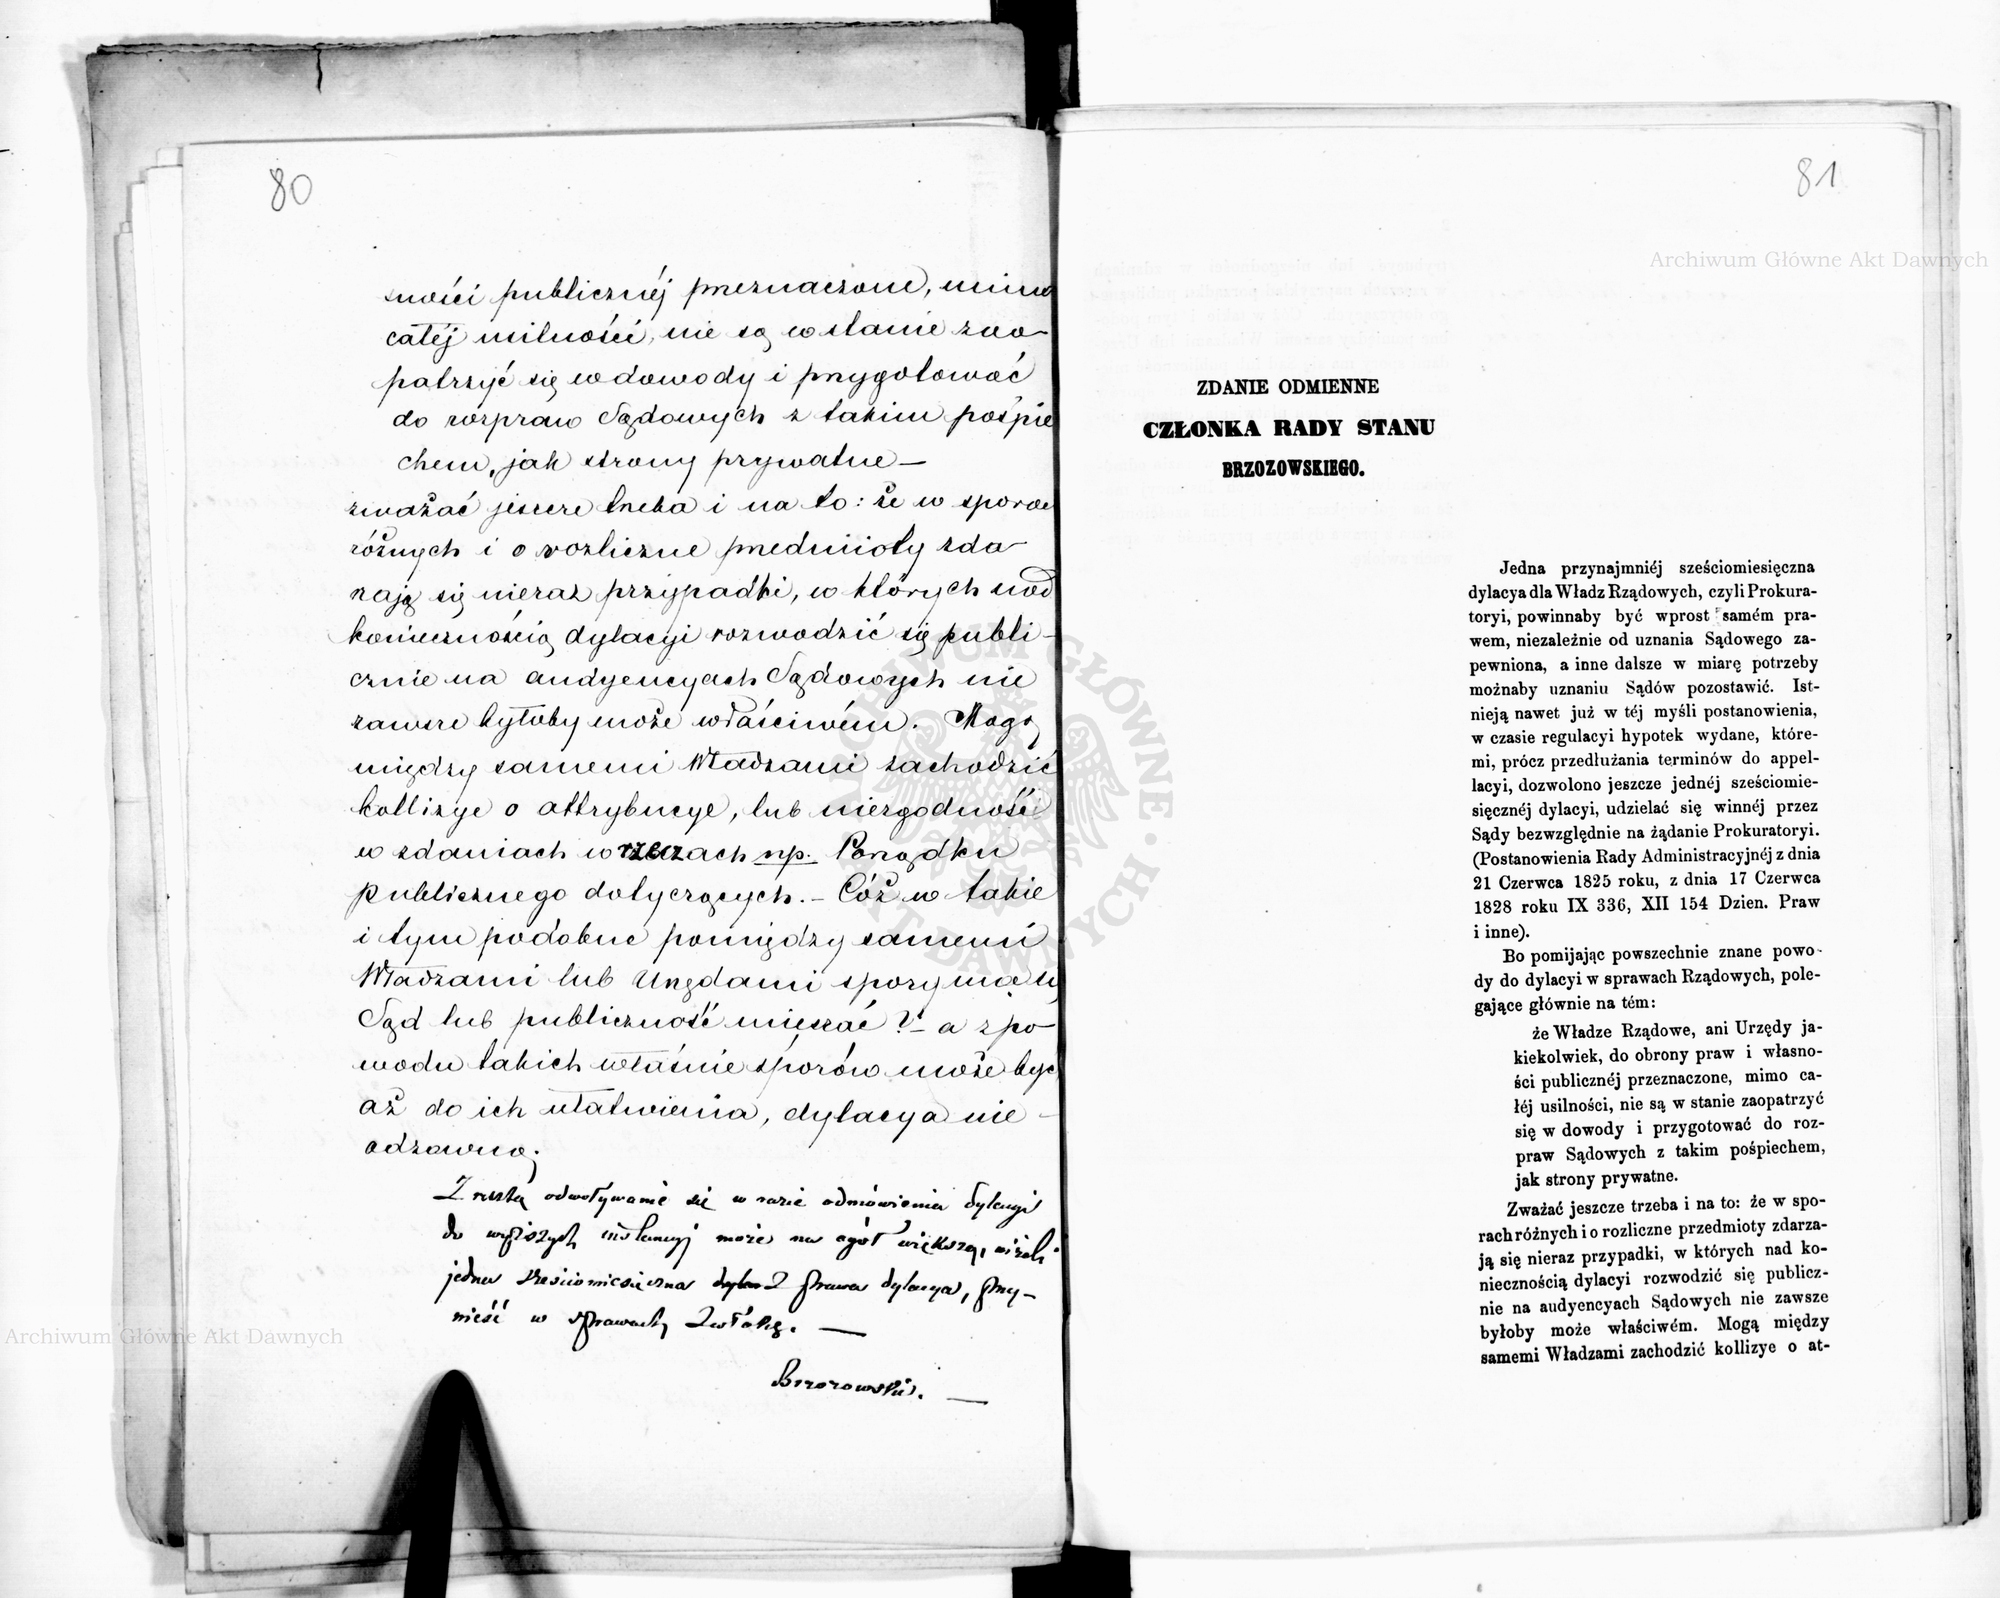 80
sności publicznéj przeznaczone, mimo
całéj usilności, nie są w stanie zao-
patrzyć się w dowody i przygotować
do rozpraw Sądowych z takim pośpie
chem, jak strony prywatne –
zważać jeszcze trzeba i na to: że w sporach
różnych i o rozliczne przedmioty zda-
rzają się nieraz przypadki, w których nad
koniecznością dylacyi rozwodzić się publi-
cznie na audyencyach Sądowych nie
zawsze byłoby może właściwém. Mogą
między samemi Władzami zachodzić
kollizye o attrybucye, lub niezgodność
w zdaniach w rzeczach np. Porządku
publicznego dotyczących. – Cóż w takie
i tym podobne pomiędzy samemi
Władzami lub Urzędami spory ma się
Sąd lub publiczność mięszać? – a z po-
wodu takich właśnie sporów może być
aż do ich ułatwienia, dylacya nie-
odzowną.
Z resztą odwoływanie się w razie odmówienia dylacyi
do wyższych instancyj może na ogół większą, niżeli
jedna sześciomiesięczna z prawa dylacya, przy-
nieść w sprawach zwłokę. –
Brzozowski. –
81
ZDANIE ODMIENNE
CZŁONKA RADY STANU
BRZOZOWSKIEGO.
Jedna przynajmniéj sześciomiesięczna
dylacya dla Władz Rządowych, czyli Prokura-
toryi, powinnaby być wprost samém pra-
wem, niezależnie od uznania Sądowego za-
pewniona, a inne dalsze w miarę potrzeby
możnaby uznaniu Sądów pozostawić. Ist-
nieją nawet już w téj myśli postanowienia,
w czasie regulacyi hypotek wydane, które-
mi, prócz przedłużania terminów do appel-
lacyi, dozwolono jeszcze jednéj sześciomie-
sięcznéj dylacyi, udzielać się winnéj przez
Sądy bezwzględnie na żądanie Prokuratoryi.
(Postanowienia Rady Administracyjnéj z dnia
21 Czerwca 1825 roku, z dnia 17 Czerwca
1828 roku IX 336, XII 154 Dzien. Praw
i inne).
Bo pomijając powszechnie znane powo-
dy do dylacyi w sprawach Rządowych, pole-
gające głównie na tém:
że Władze Rządowe, ani Urzędy ja-
kiekolwiek, do obrony praw i własno-
ści publicznéj przeznaczone, mimo ca-
łéj usilności, nie są w stanie zaopatrzyć
się w dowody i przygotować do roz-
praw Sądowych z takim pośpiechem,
jak strony prywatne.
Zważać jeszcze trzeba i na to: że w spo-
rach różnych i o rozliczne przedmioty zdarza-
ją się nieraz przypadki, w których nad ko-
niecznością dylacyi rozwodzić się publicz-
nie na audyencyach Sądowych nie zawsze
byłoby może właściwém. Mogą między
samemi Władzami zachodzić kollizye o at-
Archiwum Główne Akt Dawnych
Archiwum Główne Akt Dawnych
ARCHIWUM GŁÓWNE AKT DAWNYCH